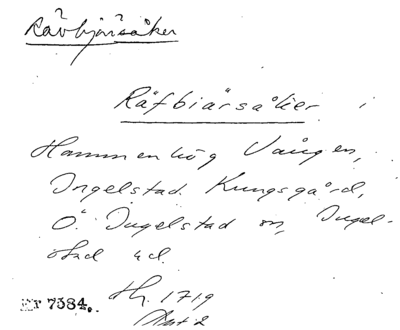 Rävbjärsåker
Räfbiärsåker i
Hammenhög Vången,
Ingelstad Kungsgård,
Ö. Ingelstad sn, Ingel-
stad hd.
Hy. 1719
Akt 2
Er 7384.